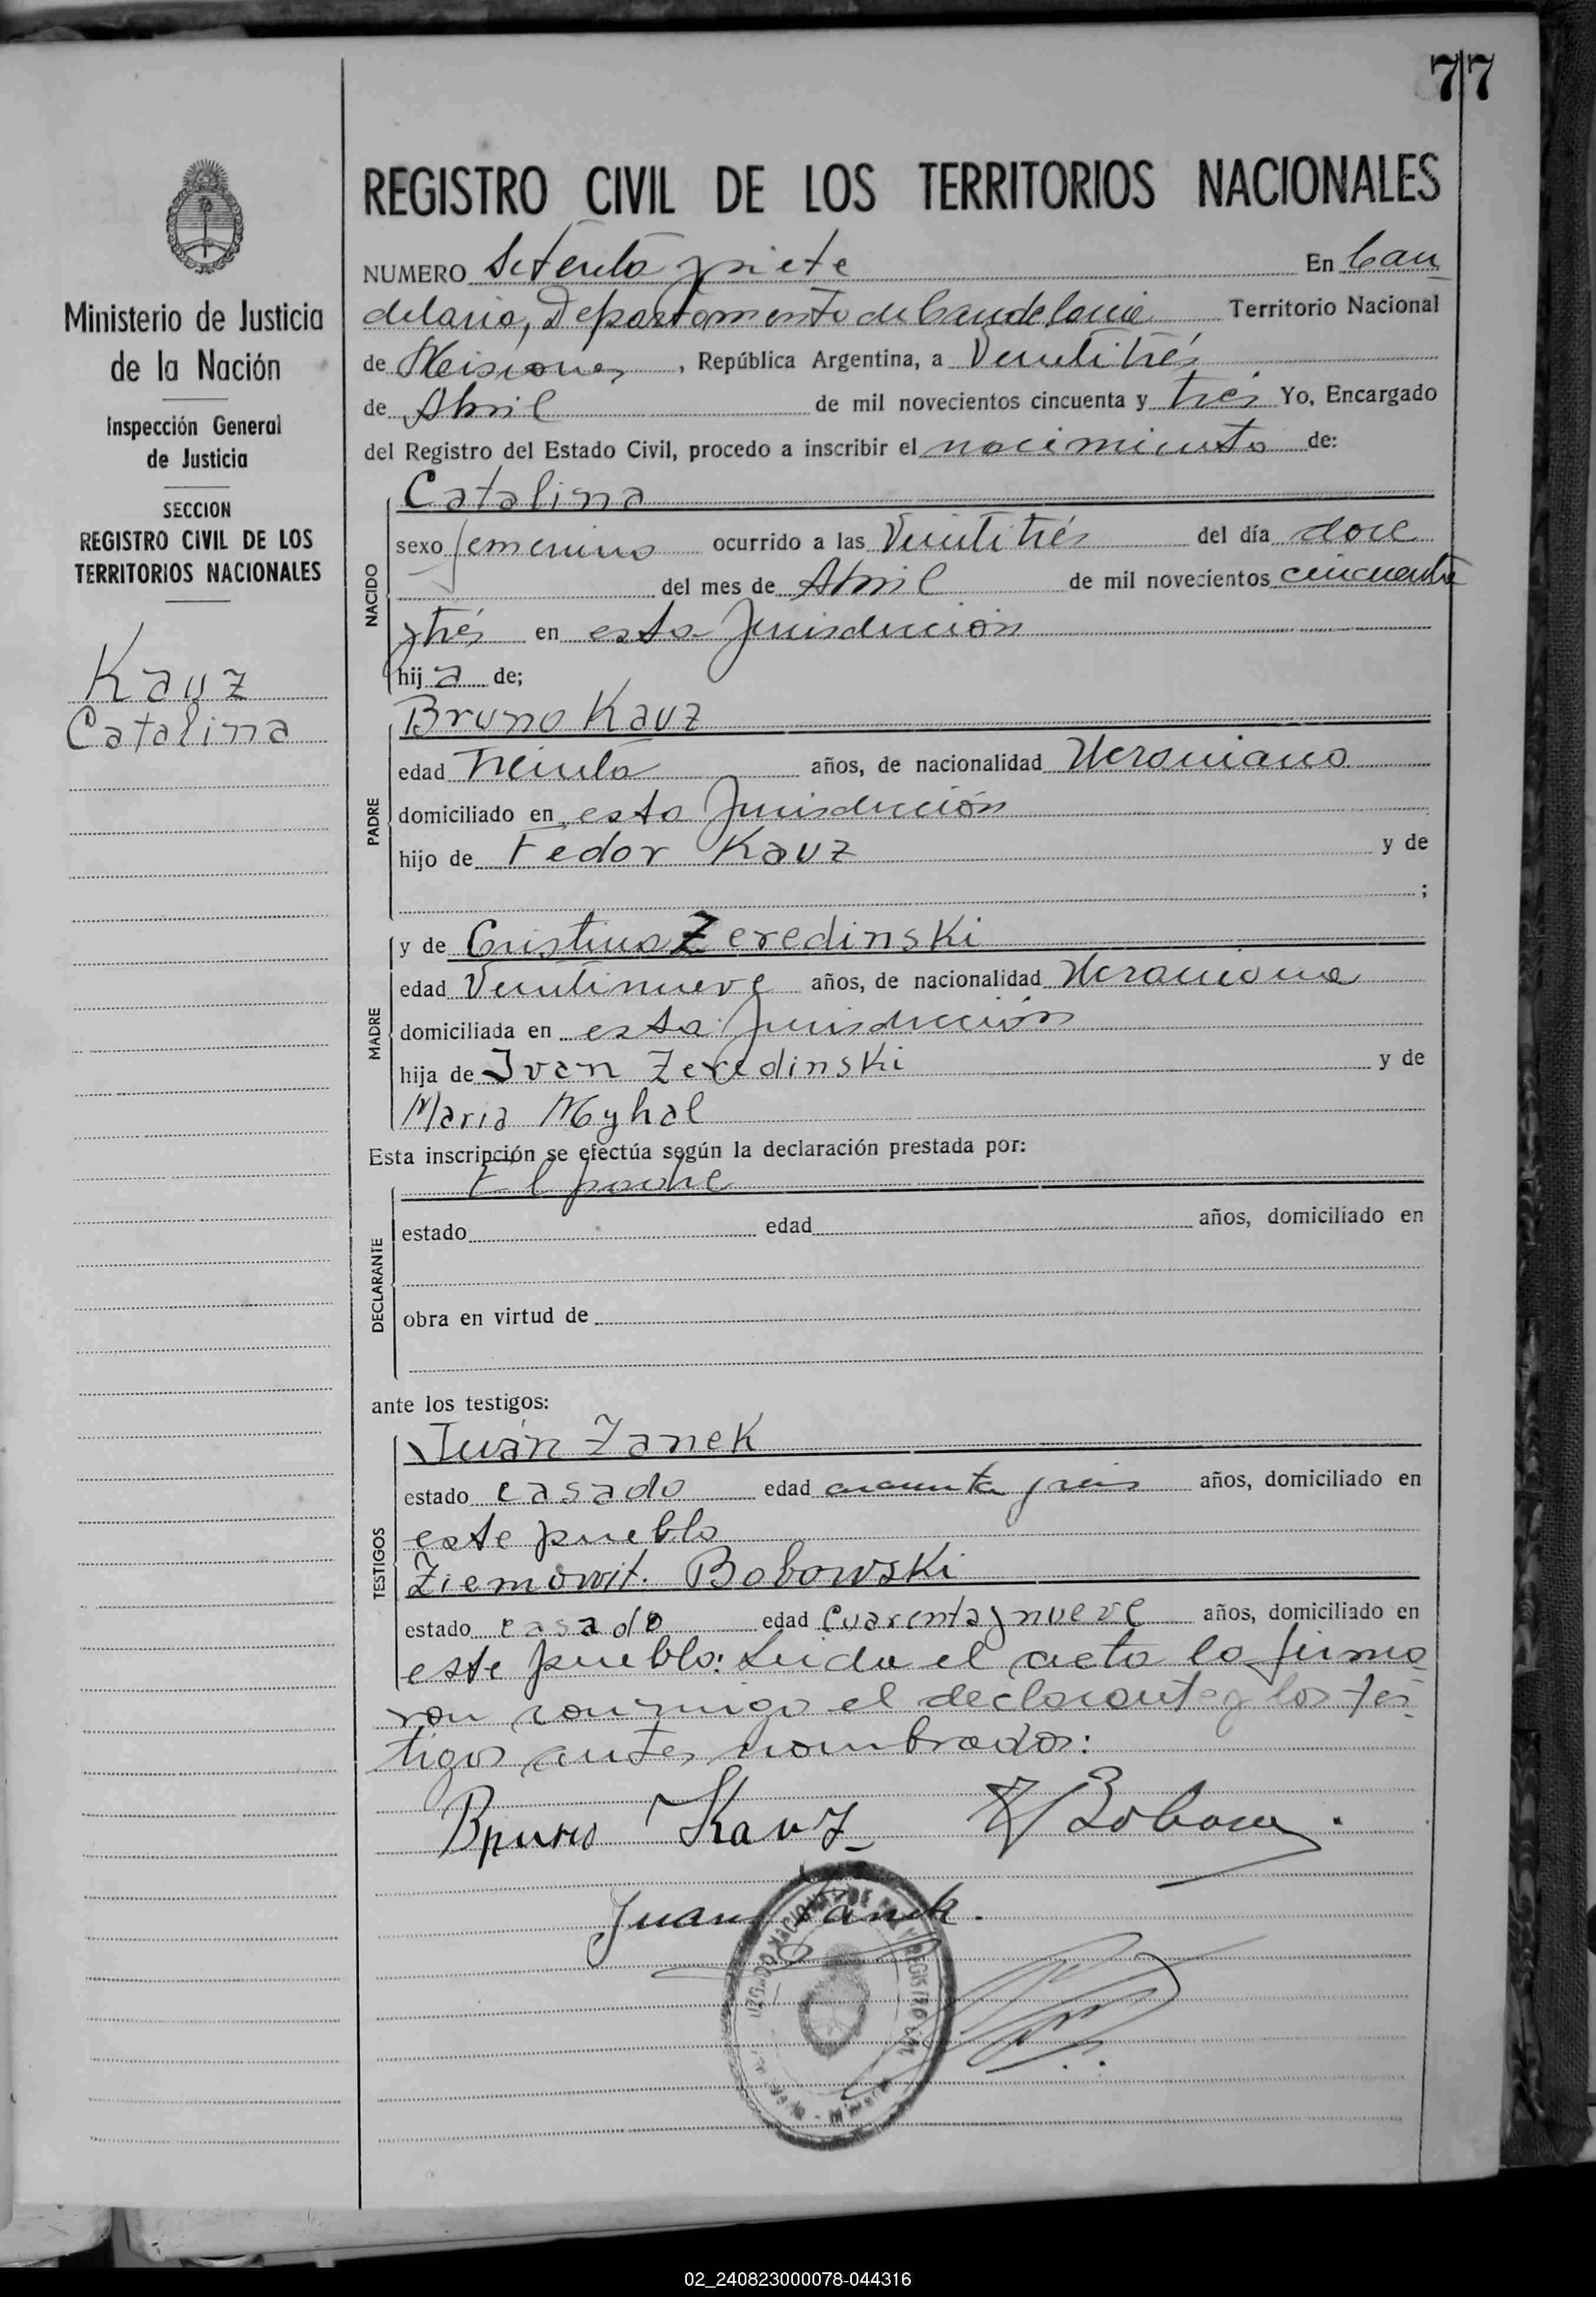 77
REGISTRO CIVIL DE LOS TERRITORIOS NACIONALES
NUMERO Setenta y siete En Can
delaria, Departamento de Candelaria Territorio Nacional
de Misiones, República Argentina, a Veintitrés
de Abril de mil novecientos cincuenta y trés Yo, Encargado
del Registro del Estado Civil, procedo a inscribir el nacimiento de:
Ministerio de Justicia
de la Nación
Inspección General
de Justicia
SECCION
REGISTRO CIVIL DE LOS
TERRITORIOS NACIONALES
Kauz
Catalina
NACIDO
Catalina
sexo femenino ocurrido a las Veintitrés del día doce
del mes de Abril de mil novecientos cincuenta
y trés en esta Jurisdicción
hij a de;
PADRE
Bruno Kauz
edad Treinta años, de nacionalidad Ucraniano
domiciliado en esta Jurisdicción
hijo de Fedor Kauz y de
;
MADRE
y de Cristina Zeredinski
edad Veintinueve años, de nacionalidad Ucraniana
domiciliada en esta Jurisdicción
hija de Ivan Zeredinski y de
Maria Myhal
Esta inscripción se efectúa según la declaración prestada por:
DECLARANTE
El padre
estado edad años, domiciliado en
obra en virtud de
ante los testigos:
TESTIGOS
Juan Zanek
estado casado edad años, domiciliado en
este pueblo
Ziemowit. Bobowski
estado casado edad Cuarenta y nueve años, domiciliado en
este pueblo: Leida el acta la firma
ron conmigo el declarante y los tes
tigos antes nombrados:
Bruno Kauz
Juan Zanek.
02_240823000078-044316